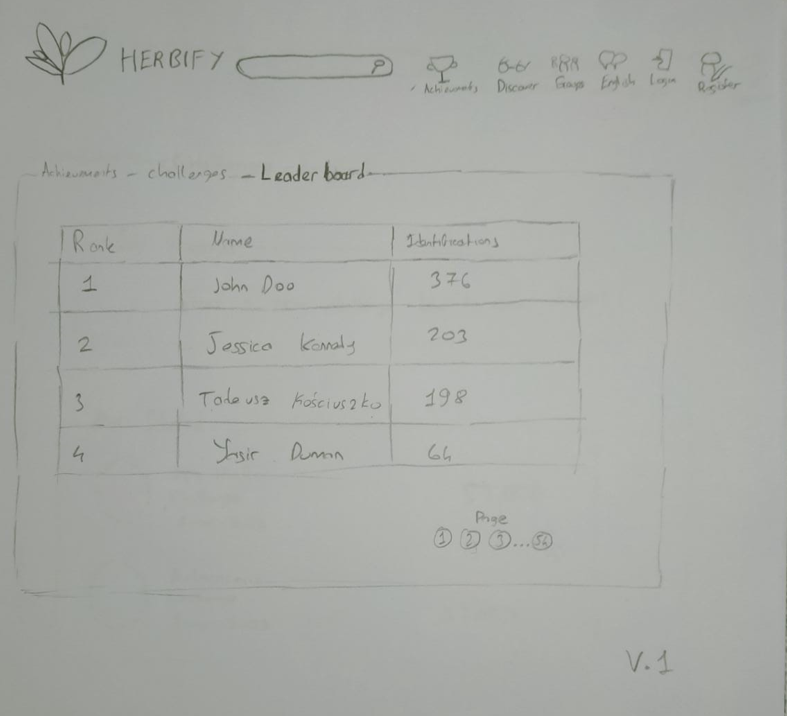 HERBIFY
Achievements Discover Groups English Logon Register
Achievements - challenges - Leader board
Rank Name Identifications
1 John Doo 376
2 Jessica 203
3 Tadeusz Kościuszko 198
4 Yasir Duman 64
Page
1 2 3 ... 54
V.1